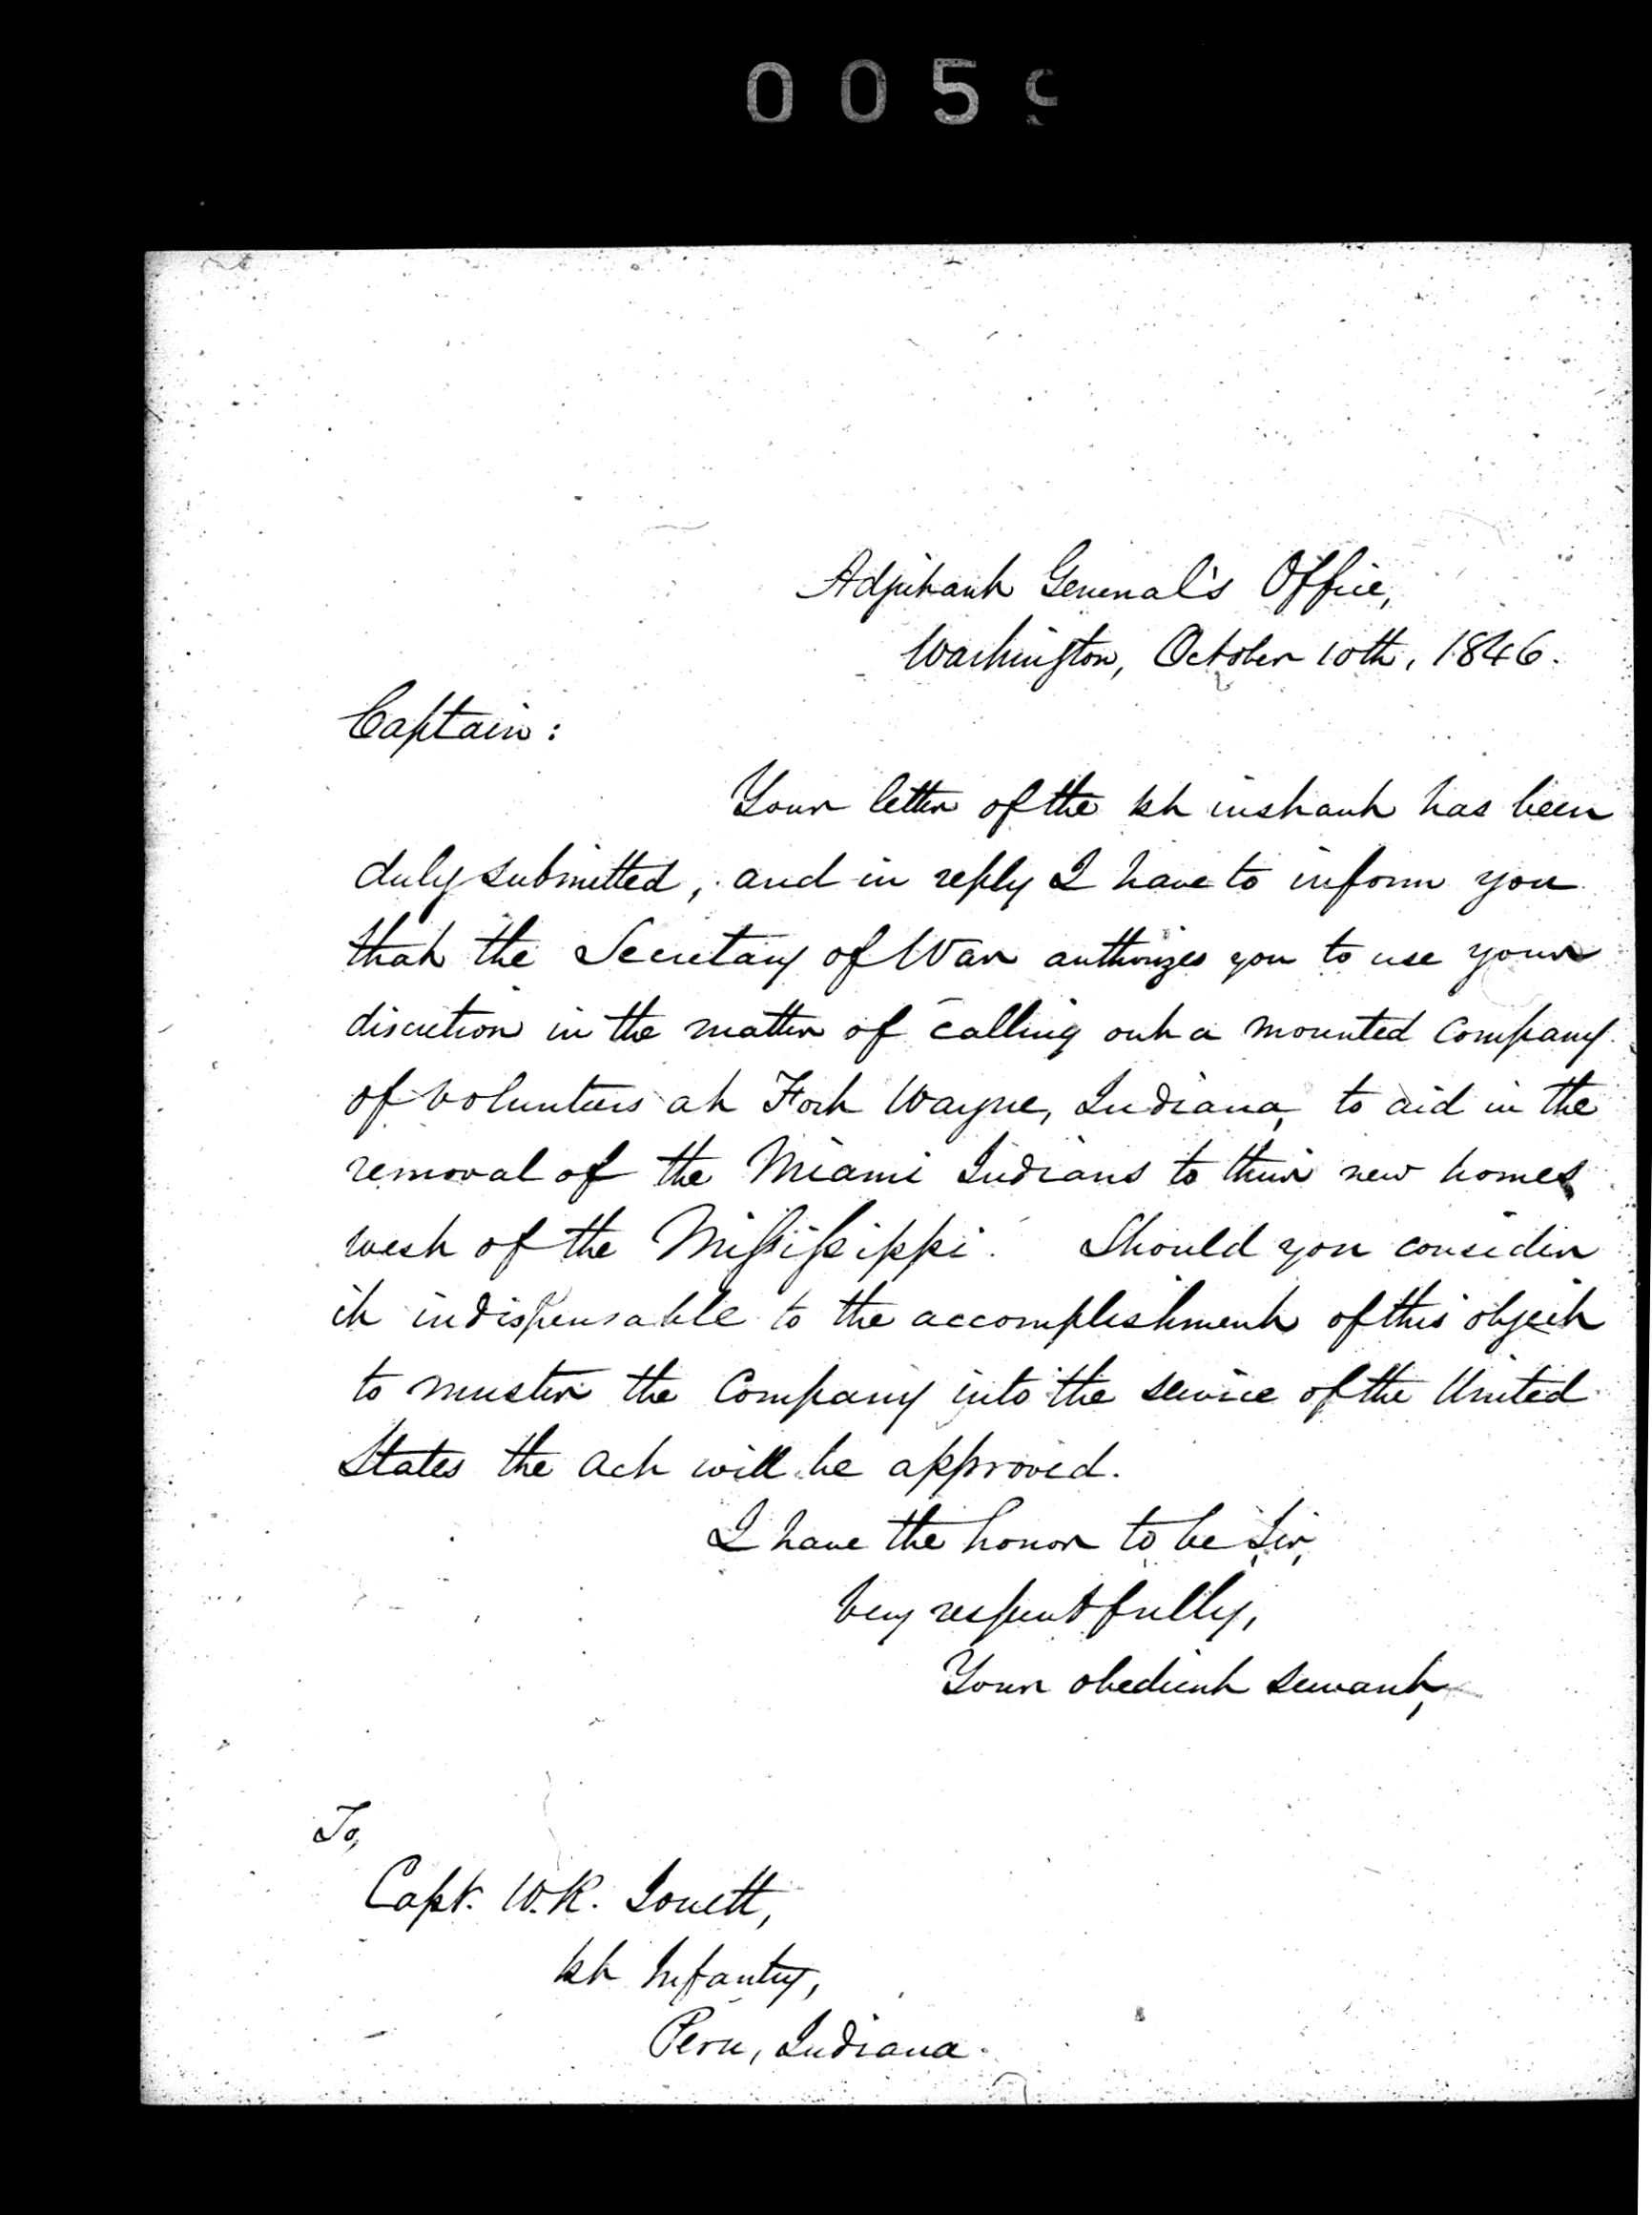 0059
Adjutant General's Office,
Washington, October 10th, 1846.
Captain:
Your letter of the 1st instant has been
duly submitted, and in reply I have to inform you
that the Secretary of War authorizes you to use your
discretion in the matter of calling out a mounted company
of volunteers at Fort Wayne, Indiana, to aid in the
removal of the Miami Indians to their new homes
west of the Mississippi. Should you consider
it indispensable to the accomplishment of this object
to muster the Company into the service of the United
States the act will be approved.
I have the honor to be Sir,
Very respectfully,
Your obedient servant,
To,
Capt. W.R. Jouett,
1st Infantry,
Peru, Indiana.